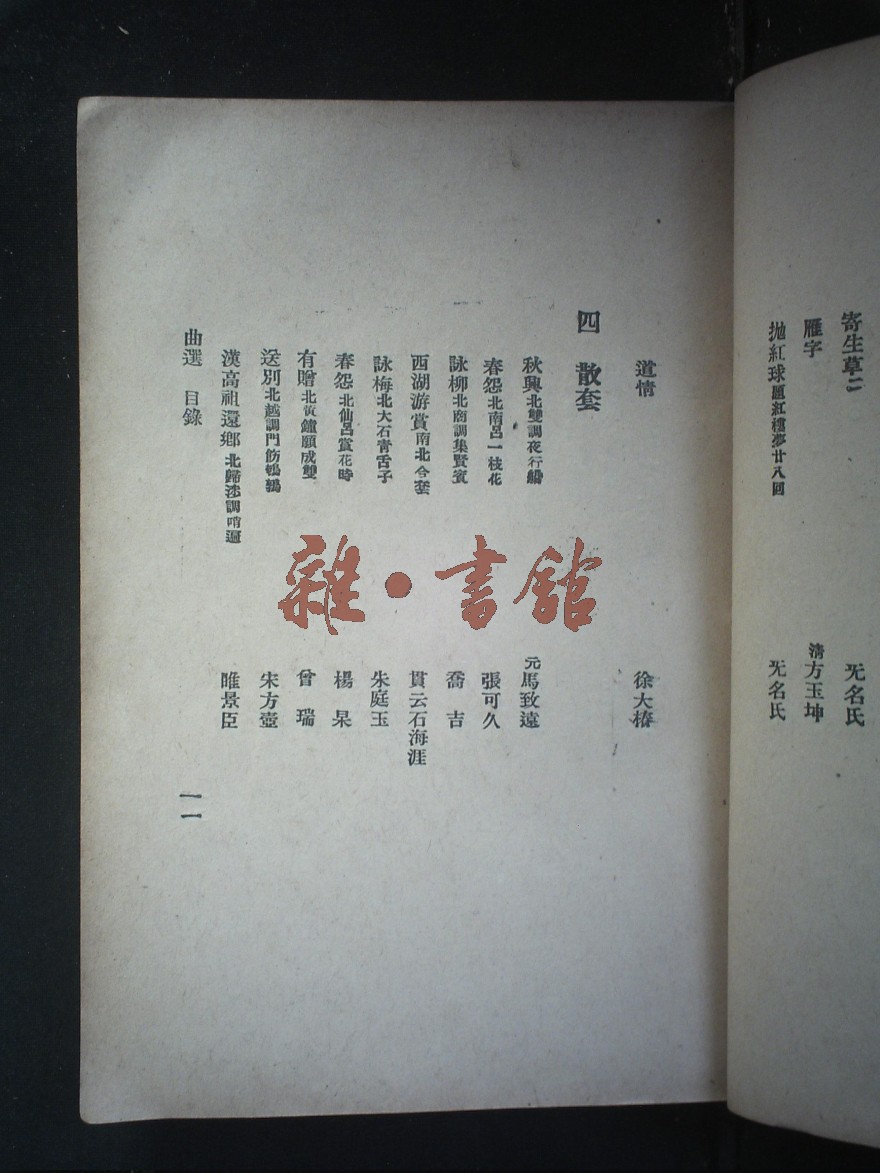 寄生草二 无名氏
雁字 清方玉坤
拋紅球題紅樓夢廿八回 无名氏
道情 徐大椿
四 散套
秋興北雙調夜行船 元馬致遠
春怨北南呂一枝花 張可久
詠柳北商調集賢賓 喬吉
西湖游賞南北合套 貫云石海涯
詠梅北大石青舌子 朱庭玉
春怨北仙呂賞花時 楊杲
有贈北黃鐘願成雙 曾瑞
送別北越調鬥鵪鶉 宋方壺
漢高祖還鄉北歸涉調哨遍 睢景臣
曲選 目錄 一一
雜·書館